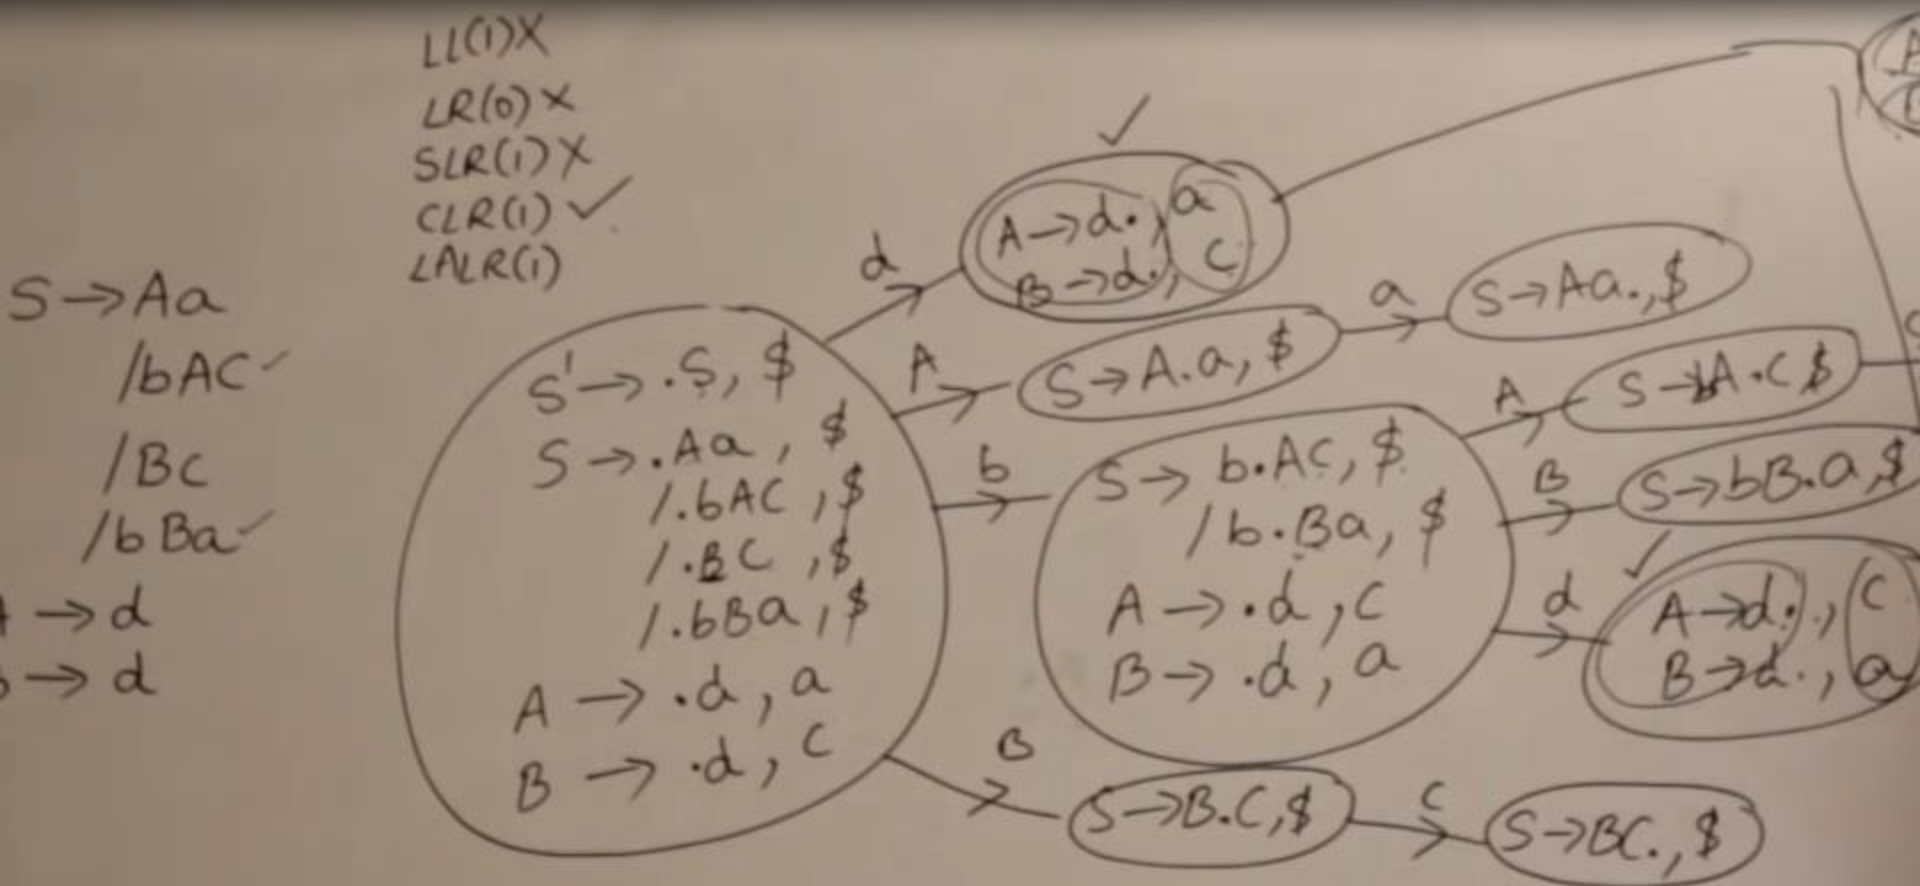 LL(1)X
LR(0)X
SLR(1)X
CLR(1)✓
LALR(1)
S→Aa
/bAC✓
/Bc
/bBa✓
A→d
→d
S'→.S, $
S→.Aa, $
/.bAC, $
/.BC, $
/.bBa, $
A→.d, a
B→.d, c
d
✓
A→d., a
B→d., c
A
S→A.a, $
a
S→Aa., $
b
S→b.AC, $
/b.Ba, $
A→.d, c
B→.d, a
A
S→bA.C $
B
S→bB.a, $
d
✓
A→d., c
B→d., a
B
S→B.C, $
c
S→BC., $